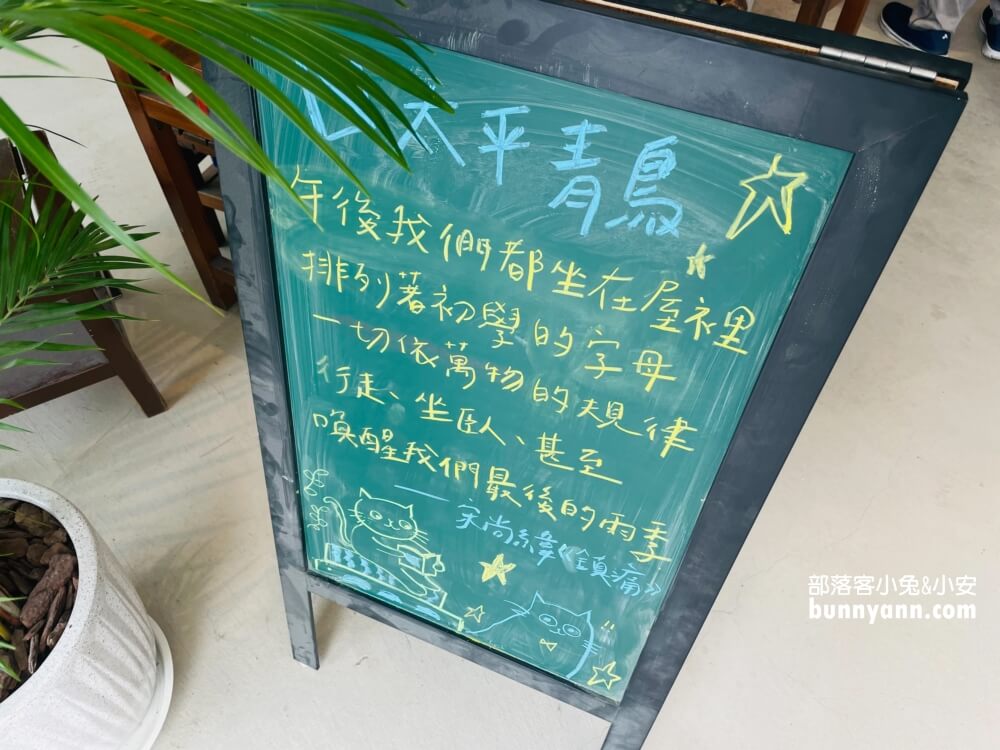 太平青鳥
午後我們都坐在屋裡
排列著初學的字母
一切依萬物的規律
行走、坐臥、甚至
喚醒我們最後的雨季
——宋尚緯《鎮痛》
部落客小兔&小安
bunnyann.com